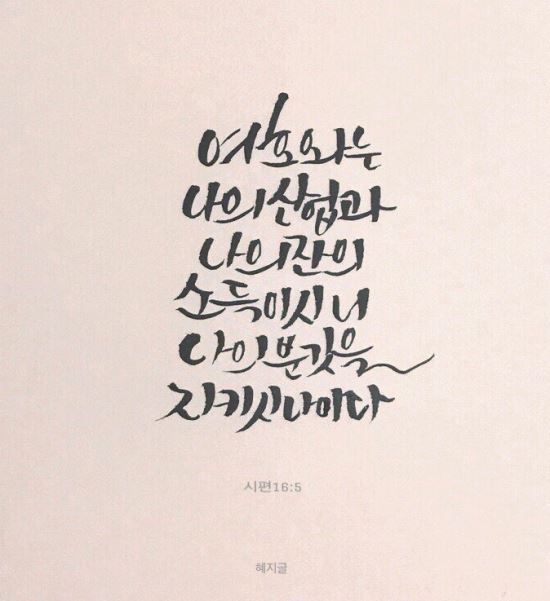 여호와는
나의 산업과
나의 잔의
소득이시니
나의 분깃을
지키시나이다
시편16:5
혜지글